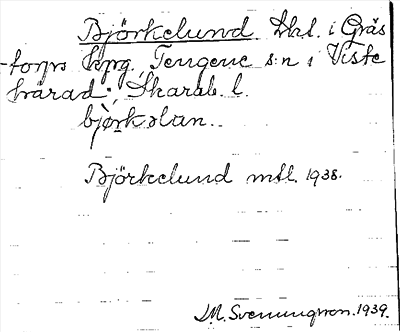 Björkelund. Lhl. i Gräs
-torps kpg, Tengene s:n i Viste
härad, Skarab. l.
bjørkəlan.
Björkelund mtl. 1938.
J.M. Svenungsson. 1939.